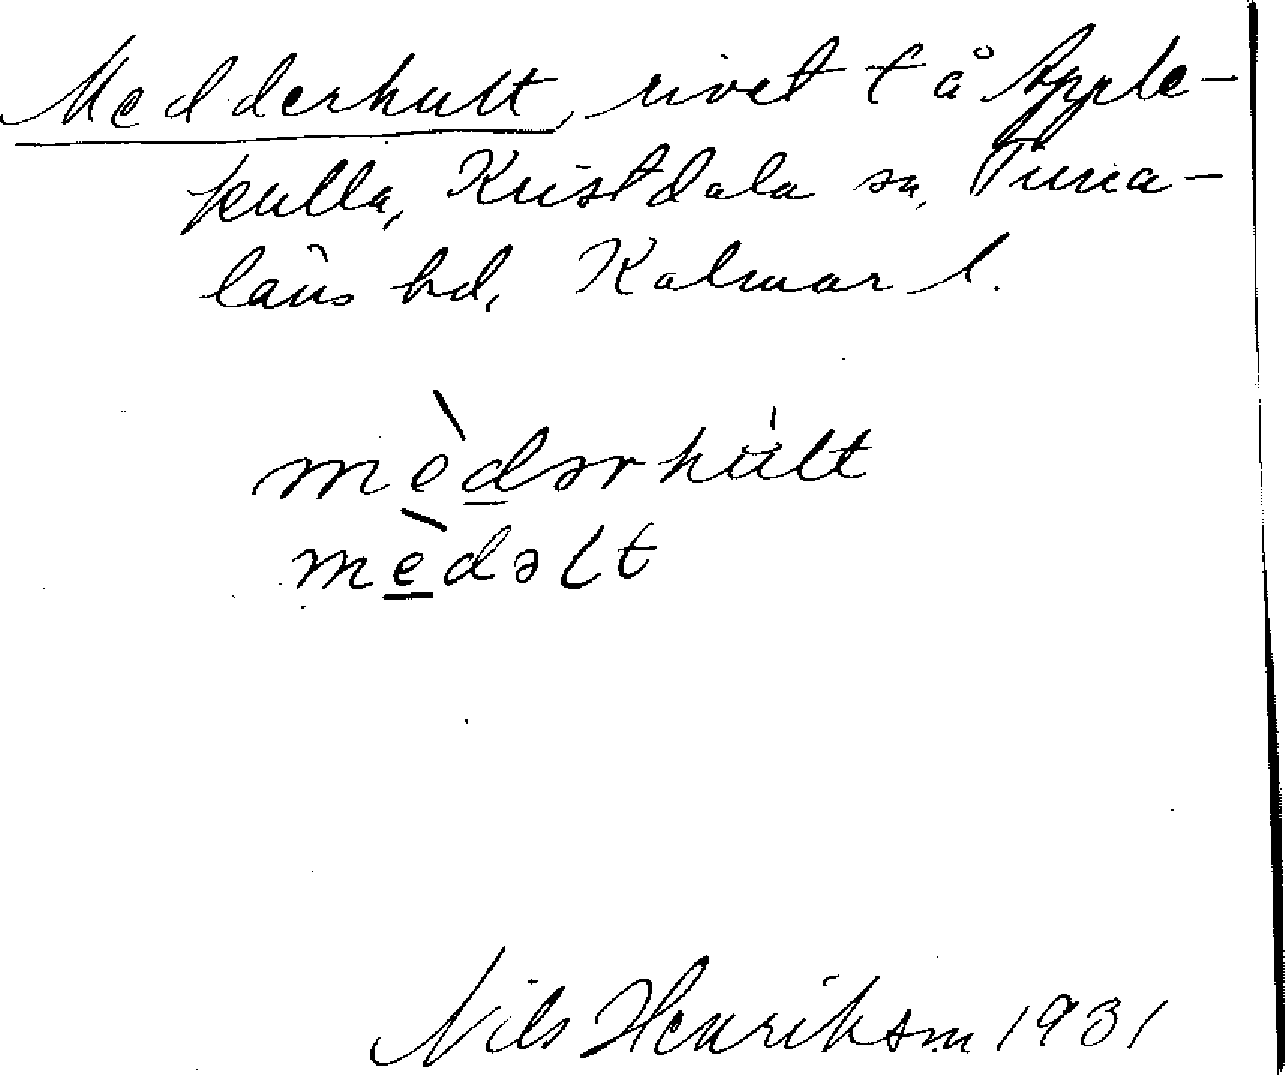 Medderhult, rivet t å Apple-
kulla, Kristdala sn, Tuna-
läns hd, Kalmar l.
mèdərhùlt
mèdəlt
Nils Henriksson 1931